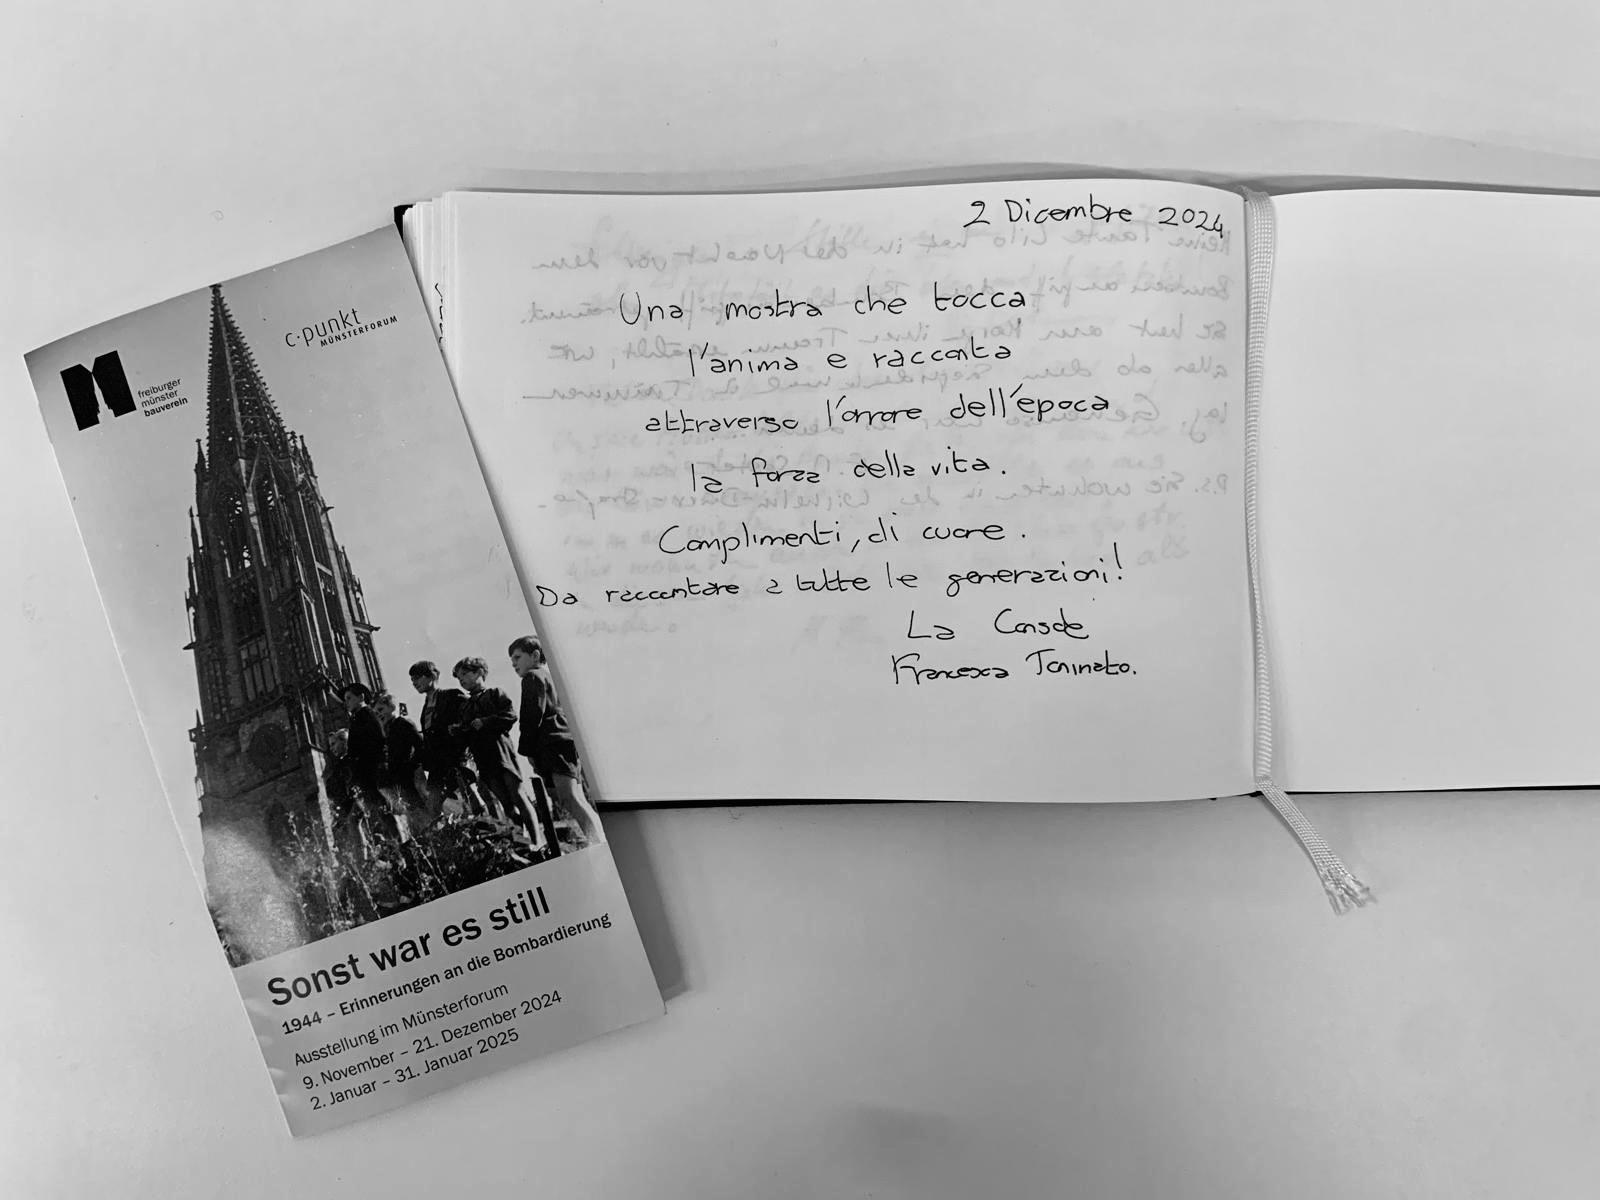 freiburger
münster
bauverein
c·punkt
MÜNSTERFORUM
Sonst war es still
1944 – Erinnerungen an die Bombardierung
Ausstellung im Münsterforum
9. November – 21. Dezember 2024
2. Januar – 31. Januar 2025
2 Dicembre 2024
Una mostra che tocca
l'anima e racconta
attraverso l'orrore dell'epoca
la forza della vita.
Complimenti, di cuore.
Da raccontare a tutte le generazioni!
La
Francesca Toninato.